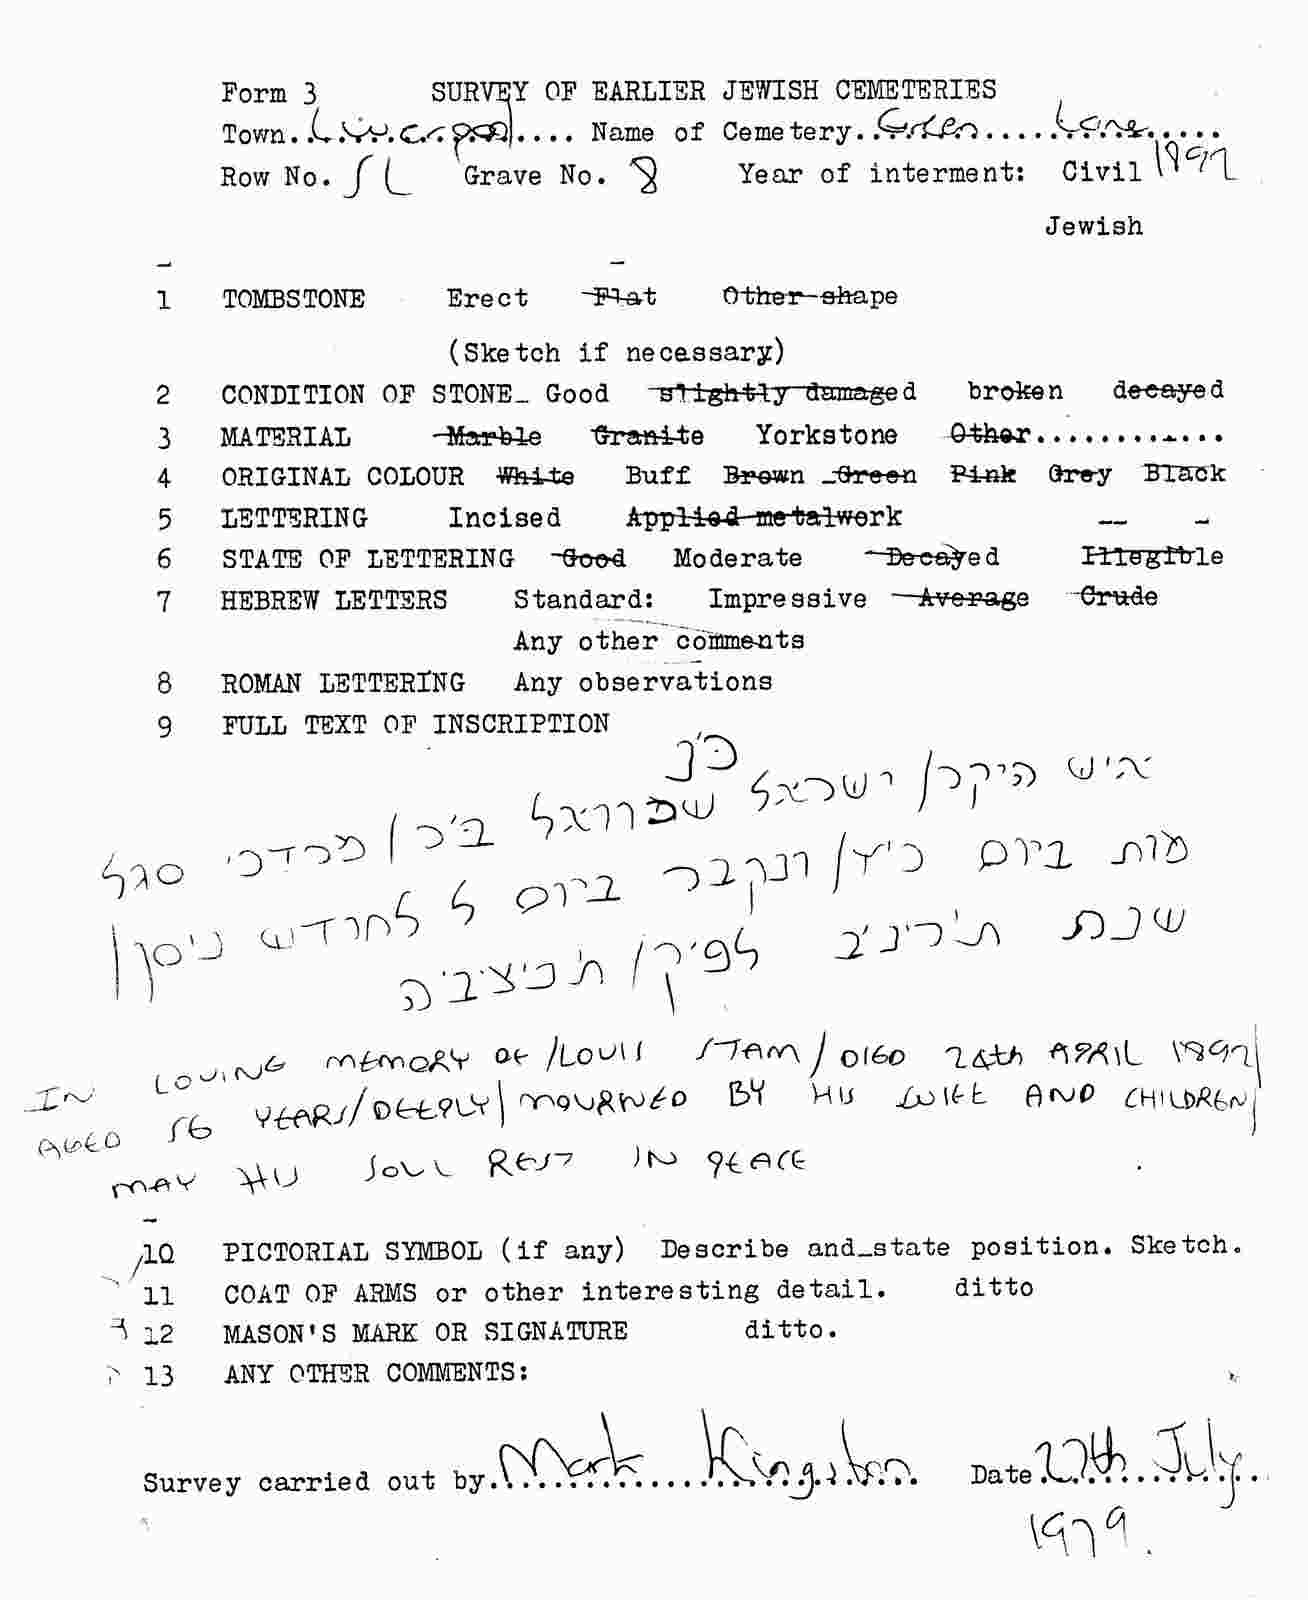 Form 3 SURVEY OF EARLIER JEWISH CEMETERIES
Town..Liverpool.... Name of Cemetery..Green.....Lane.....
Row No. SL Grave No. 8 Year of interment: Civil 1892
Jewish
1 TOMBSTONE Erect Flat Other shape
(Sketch if necessary)
2 CONDITION OF STONE_ Good slightly damaged broken decayed
3 MATERIAL Marble Granite Yorkstone Other............
4 ORIGINAL COLOUR White Buff Brown Green Pink Grey Black
5 LETTERING Incised Applied metalwork
6 STATE OF LETTERING Good Moderate Decayed Illegible
7 HEBREW LETTERS Standard: Impressive Average Crude
Any other comments
8 ROMAN LETTERING Any observations
9 FULL TEXT OF INSCRIPTION
פ'נ
איש היקר/ ישראל שמרואל ב'כ/ מרדכי סגל
מות ביום כ'ז/ ונקבר ביום ל לחודש ניסן/
שנת ת'ר'נ'ב לפ'ק/ ת'נ'צ'ב'ה
IN LOVING MEMORY OF /LOUIS STAM/ DIED 24th APRIL 1892/
AGED 56 YEARS/DEEPLY/ MOURNED BY HIS WIFE AND CHILDREN/
MAY HIS SOUL REST IN PEACE
10 PICTORIAL SYMBOL (if any) Describe and_state position. Sketch.
11 COAT OF ARMS or other interesting detail. ditto
12 MASON'S MARK OR SIGNATURE ditto.
13 ANY OTHER COMMENTS:
Survey carried out by..Mark Kingston. Date 27th July
1979.